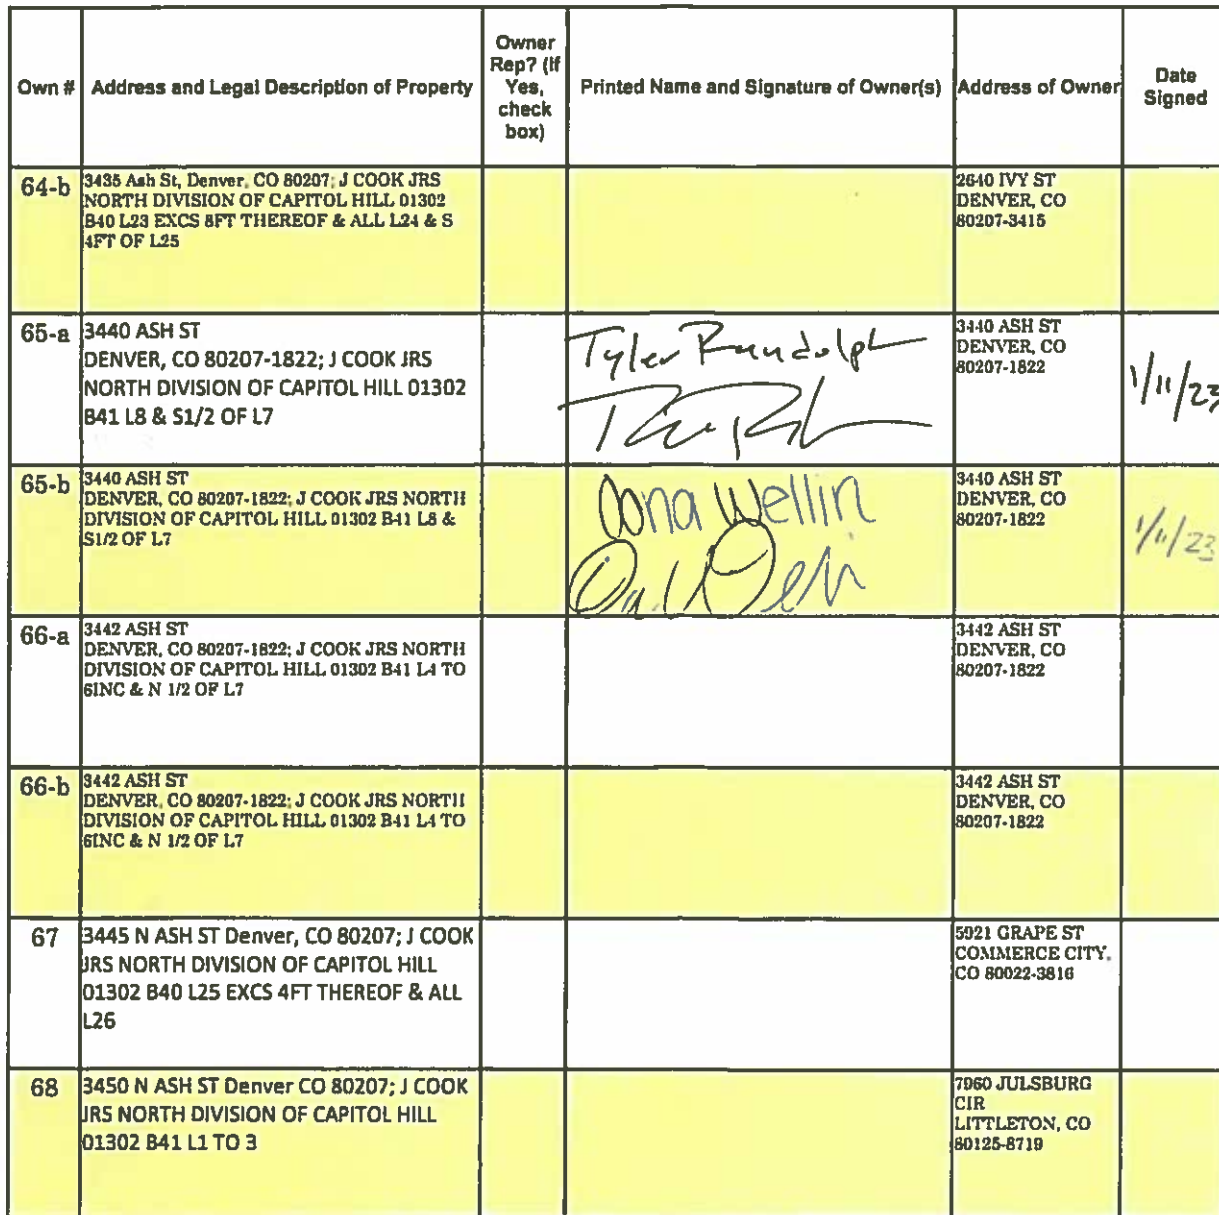 Own #
Address and Legal Description of Property
Owner
Rep? (If
Yes,
check
box)
Printed Name and Signature of Owner(s)
Address of Owner
Date
Signed
64-b
3435 Ash St, Denver, CO 80207; J COOK JRS
NORTH DIVISION OF CAPITOL HILL 01302
B40 L23 EXCS 8FT THEREOF & ALL L24 & S
4FT OF L25
2640 IVY ST
DENVER, CO
80207-3415
65-a
3440 ASH ST
DENVER, CO 80207-1822; J COOK JRS
NORTH DIVISION OF CAPITOL HILL 01302
B41 L8 & S1/2 OF L7
Tyler Randolph
3440 ASH ST
DENVER, CO
80207-1822
1/11/23
65-b
3440 ASH ST
DENVER, CO 80207-1822; J COOK JRS NORTH
DIVISION OF CAPITOL HILL 01302 B41 L8 &
S1/2 OF L7
Oona Wellin
3440 ASH ST
DENVER, CO
80207-1822
1/11/23
66-a
3442 ASH ST
DENVER, CO 80207-1822; J COOK JRS NORTH
DIVISION OF CAPITOL HILL 01302 B41 L4 TO
6INC & N 1/2 OF L7
3442 ASH ST
DENVER, CO
80207-1822
66-b
3442 ASH ST
DENVER, CO 80207-1822; J COOK JRS NORTH
DIVISION OF CAPITOL HILL 01302 B41 L4 TO
6INC & N 1/2 OF L7
3442 ASH ST
DENVER, CO
80207-1822
67
3445 N ASH ST Denver, CO 80207; J COOK
JRS NORTH DIVISION OF CAPITOL HILL
01302 B40 L25 EXCS 4FT THEREOF & ALL
L26
5921 GRAPE ST
COMMERCE CITY,
CO 80022-3816
68
3450 N ASH ST Denver CO 80207; J COOK
JRS NORTH DIVISION OF CAPITOL HILL
01302 B41 L1 TO 3
7960 JULSBURG
CIR
LITTLETON, CO
80125-8719